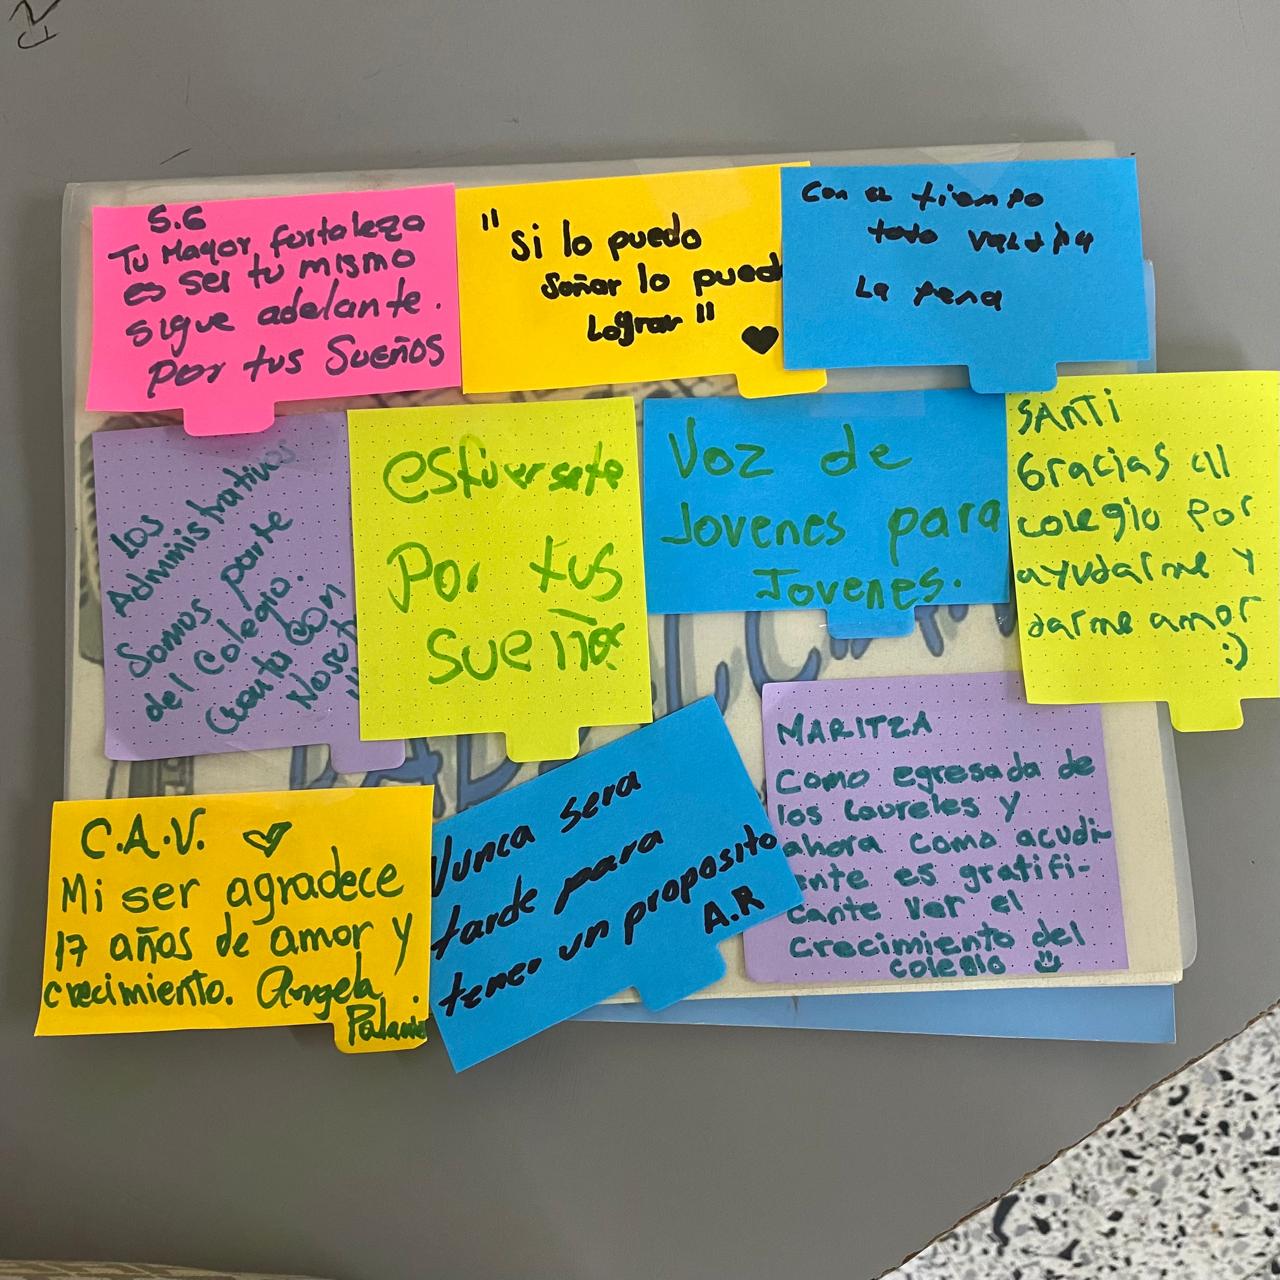 S.G
Tu Mayor fortaleza
es ser tu mismo
sigue adelante.
por tus Sueños
"si lo puedo
Soñar lo pued
Lograr"
Con el tiempo
todo valdra
La pena
los
Administrativos
Somos parte
del Colegio.
Cuenta Con
esfuersate
Por tus
sueños
Voz de
Jovenes para
Jovenes.
SANTI
Gracias al
colegio por
ayudarme y
darme amor
:)
C.A.V.
Mi ser agradece
17 años de amor y
crecimiento. Angela
Nunca sera
tarde para
tener un proposito
A.R
MARITZA
Como egresada de
los Laureles y
ahora como acudi-
ente es gratifi-
cante ver el
crecimiento del
colegio